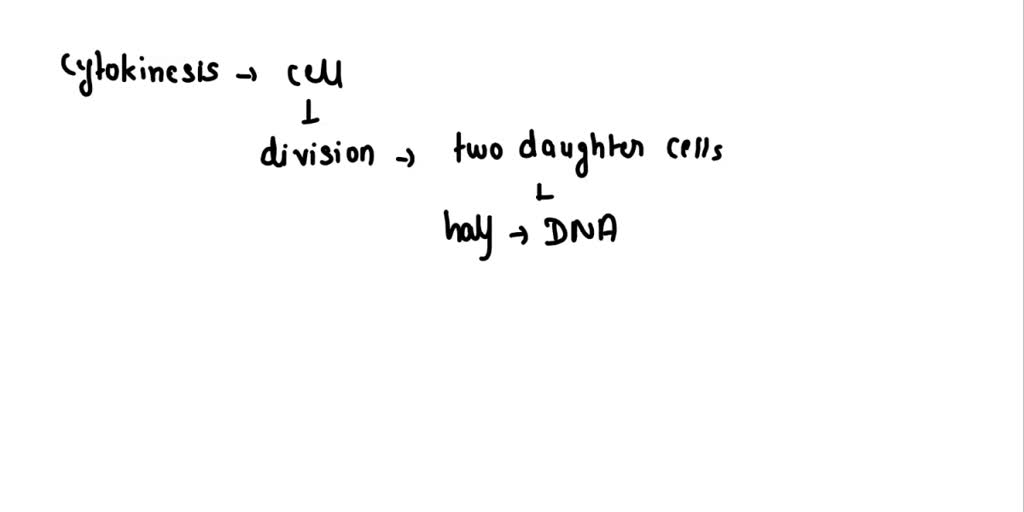 cytokinesis → cell
↓
division → two daughter cells
↓
half → DNA